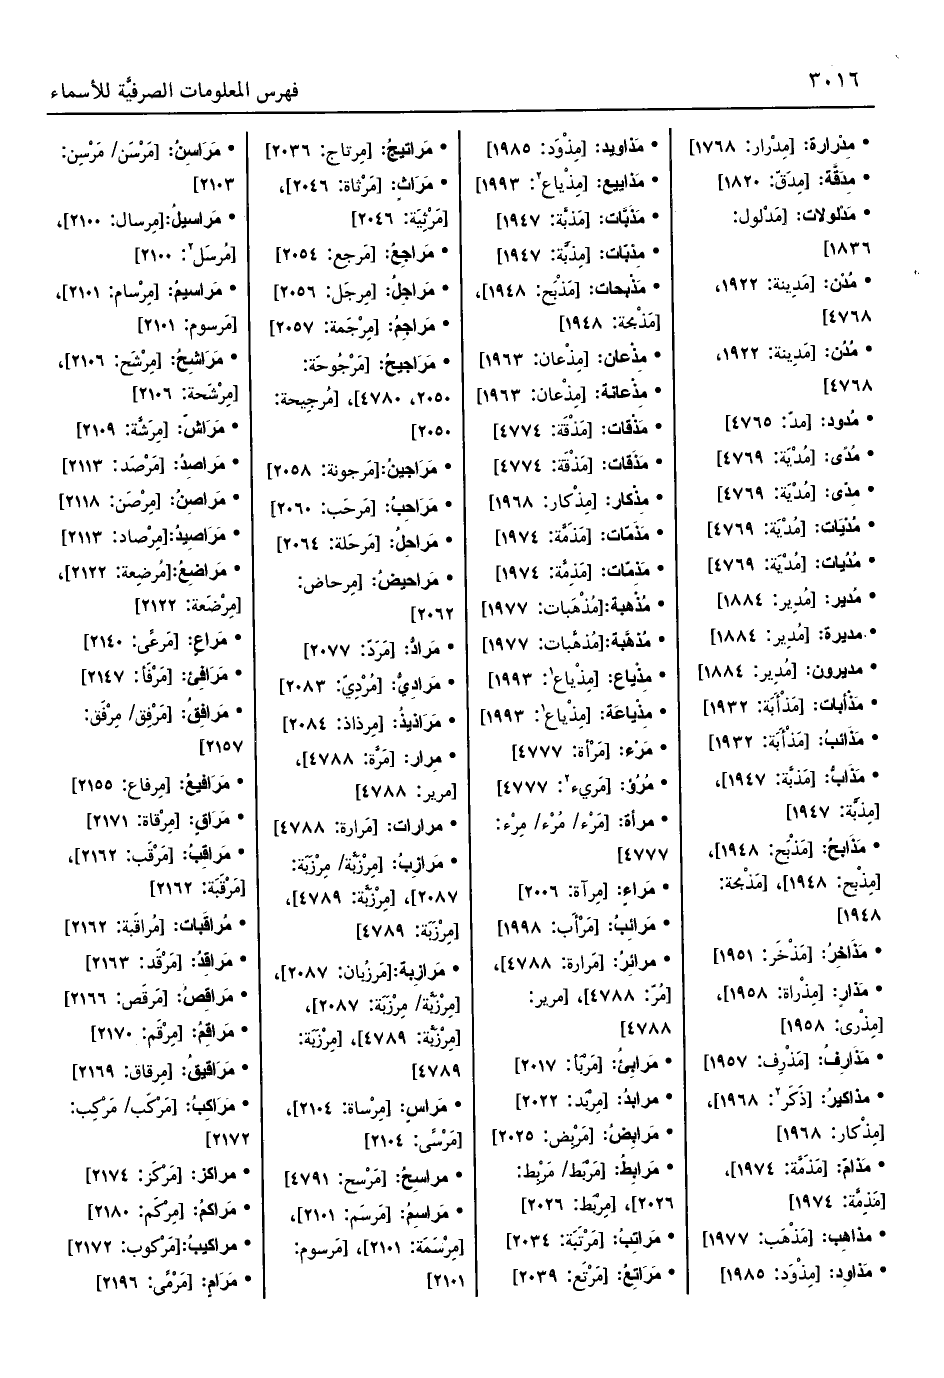 ٣٠١٦
فهرس المعلومات الصرفيَّة للأسماء
• مِدْرارة: [مِدْرار: ١٧٦٨]
• مِدقَّة: [مِدَقّ: ١٨٢٠]
• مَدْلولات: [مَدْلول:
١٨٣٦]
• مُدْن: [مَدِينة: ١٩٢٢،
٤٧٦٨]
• مُدُن: [مَدِينة: ١٩٢٢،
٤٧٦٨]
• مُدود: [مدّ: ٤٧٦٥]
• مُدًى: [مُدْيَة: ٤٧٦٩]
• مِدًى: [مُدْيَة: ٤٧٦٩]
• مُدْيَات: [مُدْيَة: ٤٧٦٩]
• مُدُيات: [مُدْيَة: ٤٧٦٩]
• مُدير: [مُدِير: ١٨٨٤]
• مديرة: [مُدِير: ١٨٨٤]
• مديرون: [مُدِير: ١٨٨٤]
• مَذْأبات: [مَذْأَبَة: ١٩٣٢]
• مَذائبُ: [مَذْأَبَة: ١٩٣٢]
• مَذَابُّ: [مَذَبَّة: ١٩٤٧]،
[مِذَبَّة: ١٩٤٧]
• مَذَابحُ: [مَذْبَح: ١٩٤٨]،
[مِذْبح: ١٩٤٨]، [مَذْبحة:
١٩٤٨
• مَذَاخرُ: [مَذْخَر: ١٩٥١]
• مَذَارٍ: [مِذْراة: ١٩٥٨]،
[مِذْرى: ١٩٥٨]
• مَذَارفُ: [مَذْرِف: ١٩٥٧]
• مذاكيرُ: [ذَكَر٢: ١٩٦٨]،
[مِذْكار: ١٩٦٨]
• مَذَامّ: [مَذَمَّة: ١٩٧٤]،
[مَذِمَّة: ١٩٧٤]
• مذاهب: [مَذْهَب: ١٩٧٧]
• مَذاود: [مِذْوَد: ١٩٨٥]
• مَذاويد: [مِذْوَد: ١٩٨٥]
• مَذاييع: [مِذْياع٢: ١٩٩٣]
• مَذَبَّات: [مَذَبَّة: ١٩٤٧]
• مِذبّات: [مِذبَّة: ١٩٤٧]
• مَذْبحات: [مَذْبَح: ١٩٤٨]،
[مَذْبحة: ١٩٤٨]
• مِذْعان: [مِذْعان: ١٩٦٣]
• مِذْعانة: [مِذْعان: ١٩٦٣]
• مَذْقات: [مَذْقَة: ٤٧٧٤]
• مَذَقات: [مَذْقَة: ٤٧٧٤]
• مذْكار: [مِذْكار: ١٩٦٨]
• مَذَمّات: [مَذَمَّة: ١٩٧٤]
• مَذِمّات: [مَذِمَّة: ١٩٧٤]
• مُذْهبة: [مُذْهَبات: ١٩٧٧]
• مُذْهَّبة: [مُذهَّبات: ١٩٧٧]
• مِذْياع: [مِذْياع١: ١٩٩٣]
• مذياعَة: [مِذْياع١: ١٩٩٣]
• مَرْء: [مَرْأة: ٤٧٧٧]
• مُرُؤ: [مَريء٢: ٤٧٧٧]
• مرأة: [مَرْء/ مُرْء/ مِرْء:
٤٧٧٧]
• مَراء: [مِرآة: ٢٠٠٦]
• مَرائبُ: [مَرْأَب: ١٩٩٨]
• مرائرُ: [مَرارة: ٤٧٨٨]،
[مُرّ: ٤٧٨٨]، [مرير:
٤٧٨٨]
• مَرابئُ: [مَرْبَأ: ٢٠١٧]
• مرابدُ: [مِرْبَد: ٢٠٢٢]
• مَرابضُ: [مَرْبِض: ٢٠٢٥]
• مرابطُ: [مَرْبَط/ مَرْبِط:
٢٠٢٦]، [مِرْبَط: ٢٠٢٦]
• مَراتبُ: [مَرْتَبَة: ٢٠٣٤]
• مَرَاتعُ: [مَرْتَع: ٢٠٣٩]
• مَراتيجُ: [مِرتاج: ٢٠٣٦]
• مَرَاثٍ: [مَرْثاة: ٢٠٤٦]،
[مَرْثِيَة: ٢٠٤٦]
• مَراجعُ: [مَرجع: ٢٠٥٤]
• مَراجلُ: [مِرجَل: ٢٠٥٦]
• مَراجمُ: [مِرْجَمة: ٢٠٥٧]
• مَراجيحُ: [مَرْجُوحَة:
٢٠٥٠، ٤٧٨٠]، [مُرجيحة:
٢٠٥٠]
• مَرَاجينُ: [مَرجونة: ٢٠٥٨]
• مَراحبُ: [مَرحَب: ٢٠٦٠]
• مَراحلُ: [مَرحَلة: ٢٠٦٤]
• مَرَاحيضُ: [مِرحاض:
٢٠٦٢]
• مَرادُّ: [مَرَدّ: ٢٠٧٧]
• مَراديُّ: [مُرْدِيّ: ٢٠٨٣]
• مَرَاذيذُ: [مِرذاذ: ٢٠٨٤]
• مرار: [مَرَّة: ٤٧٨٨]،
[مرير: ٤٧٨٨]
• مرارات: [مَرارة: ٤٧٨٨]
• مَرازبُ: [مِرْزَبَّة/ مِرْزَبَة:
٢٠٨٧]، [مِرْزَبَّة: ٤٧٨٩]،
[مِرْزَبَة: ٤٧٨٩]
• مَرازبة: [مَرزُبان: ٢٠٨٧]،
[مِرْزَبَّة/ مِرْزَبَة: ٢٠٨٧]،
[مِرْزَبَّة: ٤٧٨٩]، [مِرْزَبة:
٤٧٨٩]
• مَراسٍ: [مِرْساة: ٢١٠٤]،
[مَرْسًى: ٢١٠٤]
• مراسحُ: [مَرْسح: ٤٧٩١]
• مَراسمُ: [مَرسَم: ٢١٠١]،
[مِرْسَمَة: ٢١٠١]، [مَرسوم:
٢١٠١]
• مَرَاسنُ: [مَرْسَن/ مَرْسِن:
٢١٠٣]
• مَراسيلُ: [مِرسال: ٢١٠٠]،
[مُرسَل٢: ٢١٠٠]
• مَراسيمُ: [مِرْسام: ٢١٠١]،
[مَرسوم: ٢١٠١]
• مَراشحُ: [مِرْشَح: ٢١٠٦]،
[مِرْشَحة: ٢١٠٦]
• مَرَاشّ: [مِرَشَّة: ٢١٠٩]
• مَراصدُ: [مَرْصَد: ٢١١٣]
• مَراصنُ: [مِرْصَن: ٢١١٨]
• مَراصيدُ: [مِرْصاد: ٢١١٣]
• مَراضعُ: [مُرضِعة: ٢١٢٢]،
[مِرْضَعة: ٢١٢٢]
• مَراعٍ: [مَرعًى: ٢١٤٠]
• مَرافئُ: [مَرْفَأ: ٢١٤٧]
• مَرافقُ: [مَرْفِق/ مِرْفَق:
٢١٥٧]
• مَرَافيعُ: [مِرفاع: ٢١٥٥]
• مَرَاقٍ: [مِرْقاة: ٢١٧١]
• مَراقبُ: [مَرْقَب: ٢١٦٢]،
[مَرْقَبَة: ٢١٦٢]
• مُراقَبات: [مُراقَبة: ٢١٦٢]
• مَراقدُ: [مَرْقَد: ٢١٦٣]
• مَراقصُ: [مَرقَص: ٢١٦٦]
• مَراقمُ: [مِرْقَم: ٢١٧٠]
• مَرَاقيقُ: [مِرقاق: ٢١٦٩]
• مَراكبُ: [مَرْكَب/ مَرْكِب:
٢١٧٢]
• مراكز: [مَرْكَز: ٢١٧٤]
• مَراكمُ: [مِرْكَم: ٢١٨٠]
• مراكيبُ: [مَرْكوب: ٢١٧٢]
• مَرَامٍ: [مَرْمًى: ٢١٩٦]